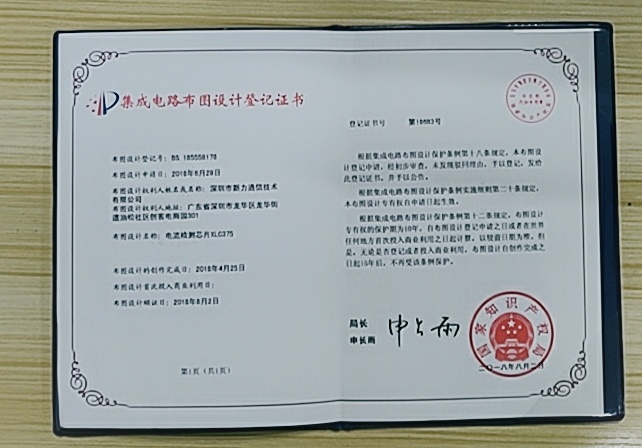 集成电路布图设计登记证书
布图设计登记号：BS.185558178
布图设计申请日：2018年6月29日
布图设计权利人姓名或名称：深圳市新力通信技术
有限公司
布图设计权利人地址：广东省深圳市龙华区龙华街
道油松社区创客电商园301
布图设计名称：电流检测芯片XLC375
布图设计的创作完成日：2018年4月25日
布图设计首次投入商业利用日：
布图设计颁证日：2018年8月2日
第1页（共1页）
登记证书号 第18683号
根据集成电路布图设计保护条例第十八条规定，本布图设
计登记申请，经初步审查，未发现驳回理由，予以登记，发给
此登记证书，并予以公告。
根据集成电路布图设计保护条例实施细则第二十条规定，
本布图设计专有权自申请日起生效。
根据集成电路布图设计保护条例第十二条规定，布图设计
专有权的保护期为10年，自布图设计登记申请之日或者在世界
任何地方首次投入商业利用之日起计算，以较前日期为准。但
是，无论是否登记或者投入商业利用，布图设计自创作完成之
日起15年后，不再受该条例保护。
局长
申长雨
申长雨
国家知识产权局
二〇一八年八月二日